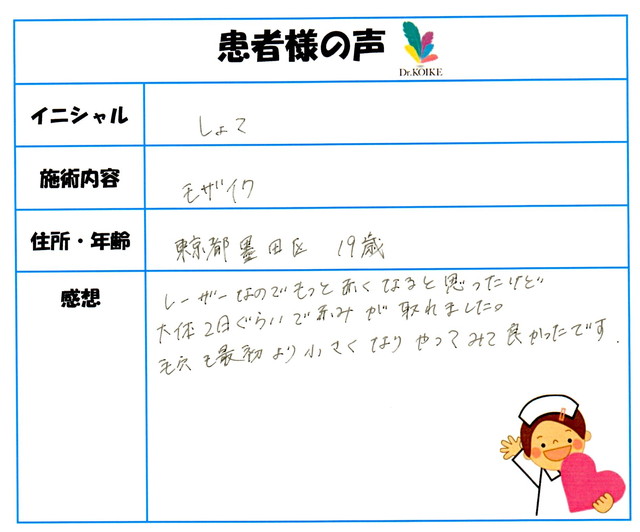 患者様の声
Dr.KOIKE
イニシャル
しょこ
施術内容
モザイク
住所・年齢
東京都墨田区 19歳
感想
レーザーなのでもっと赤くなると思ったけど
大体2日ぐらいで赤みが取れました。
毛穴も最初より小さくなりやってみて良かったです.